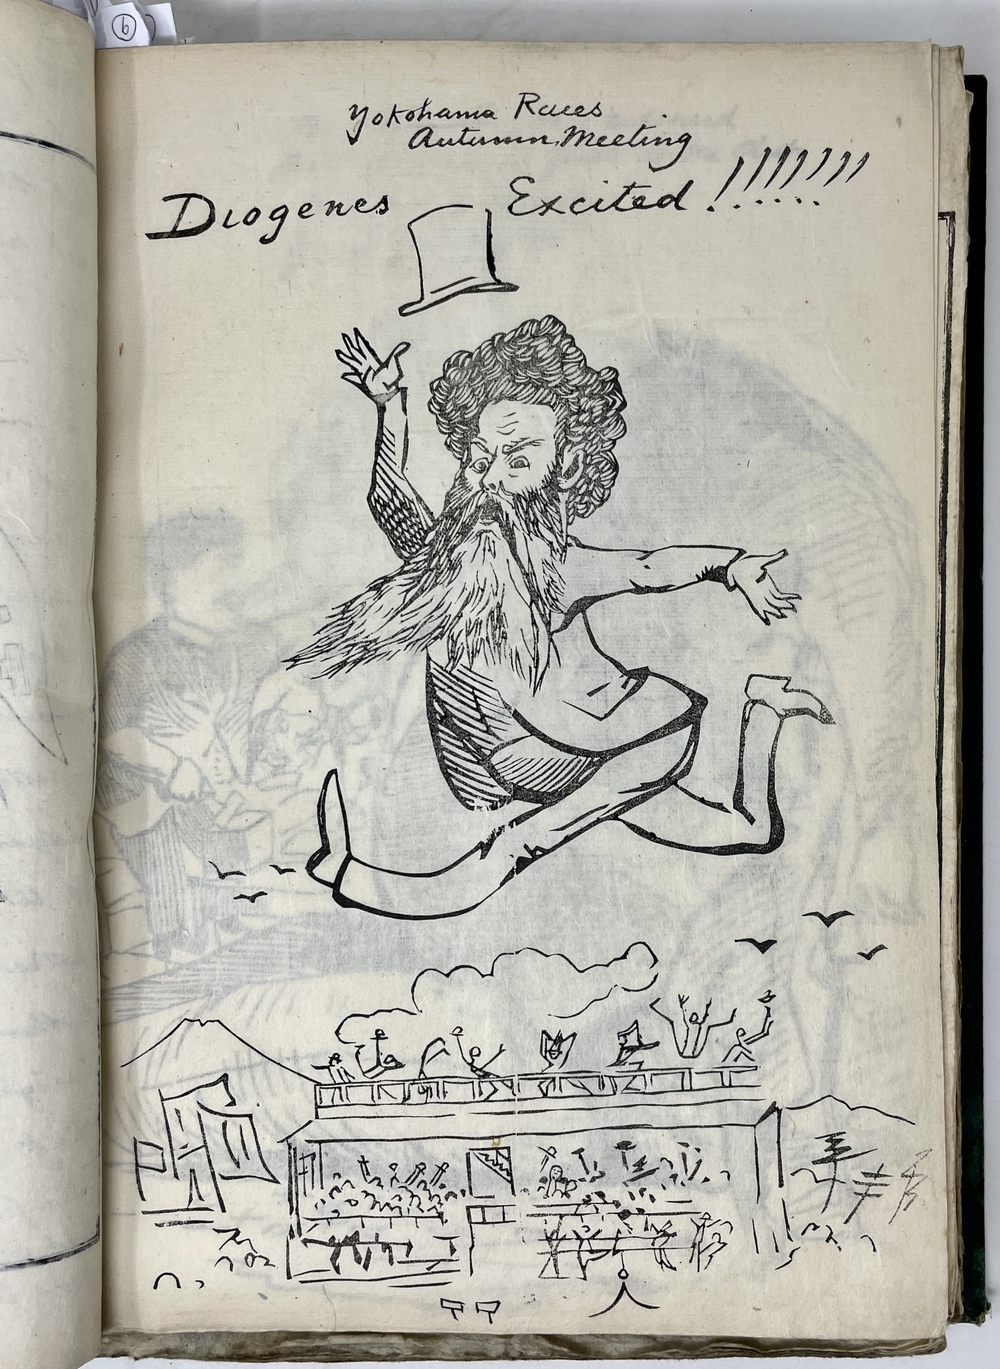 6
Yokohama Races
Autumn Meeting
Diogenes Excited!!!!!!!